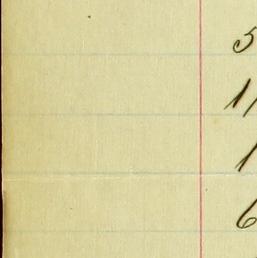 5
11
1
6